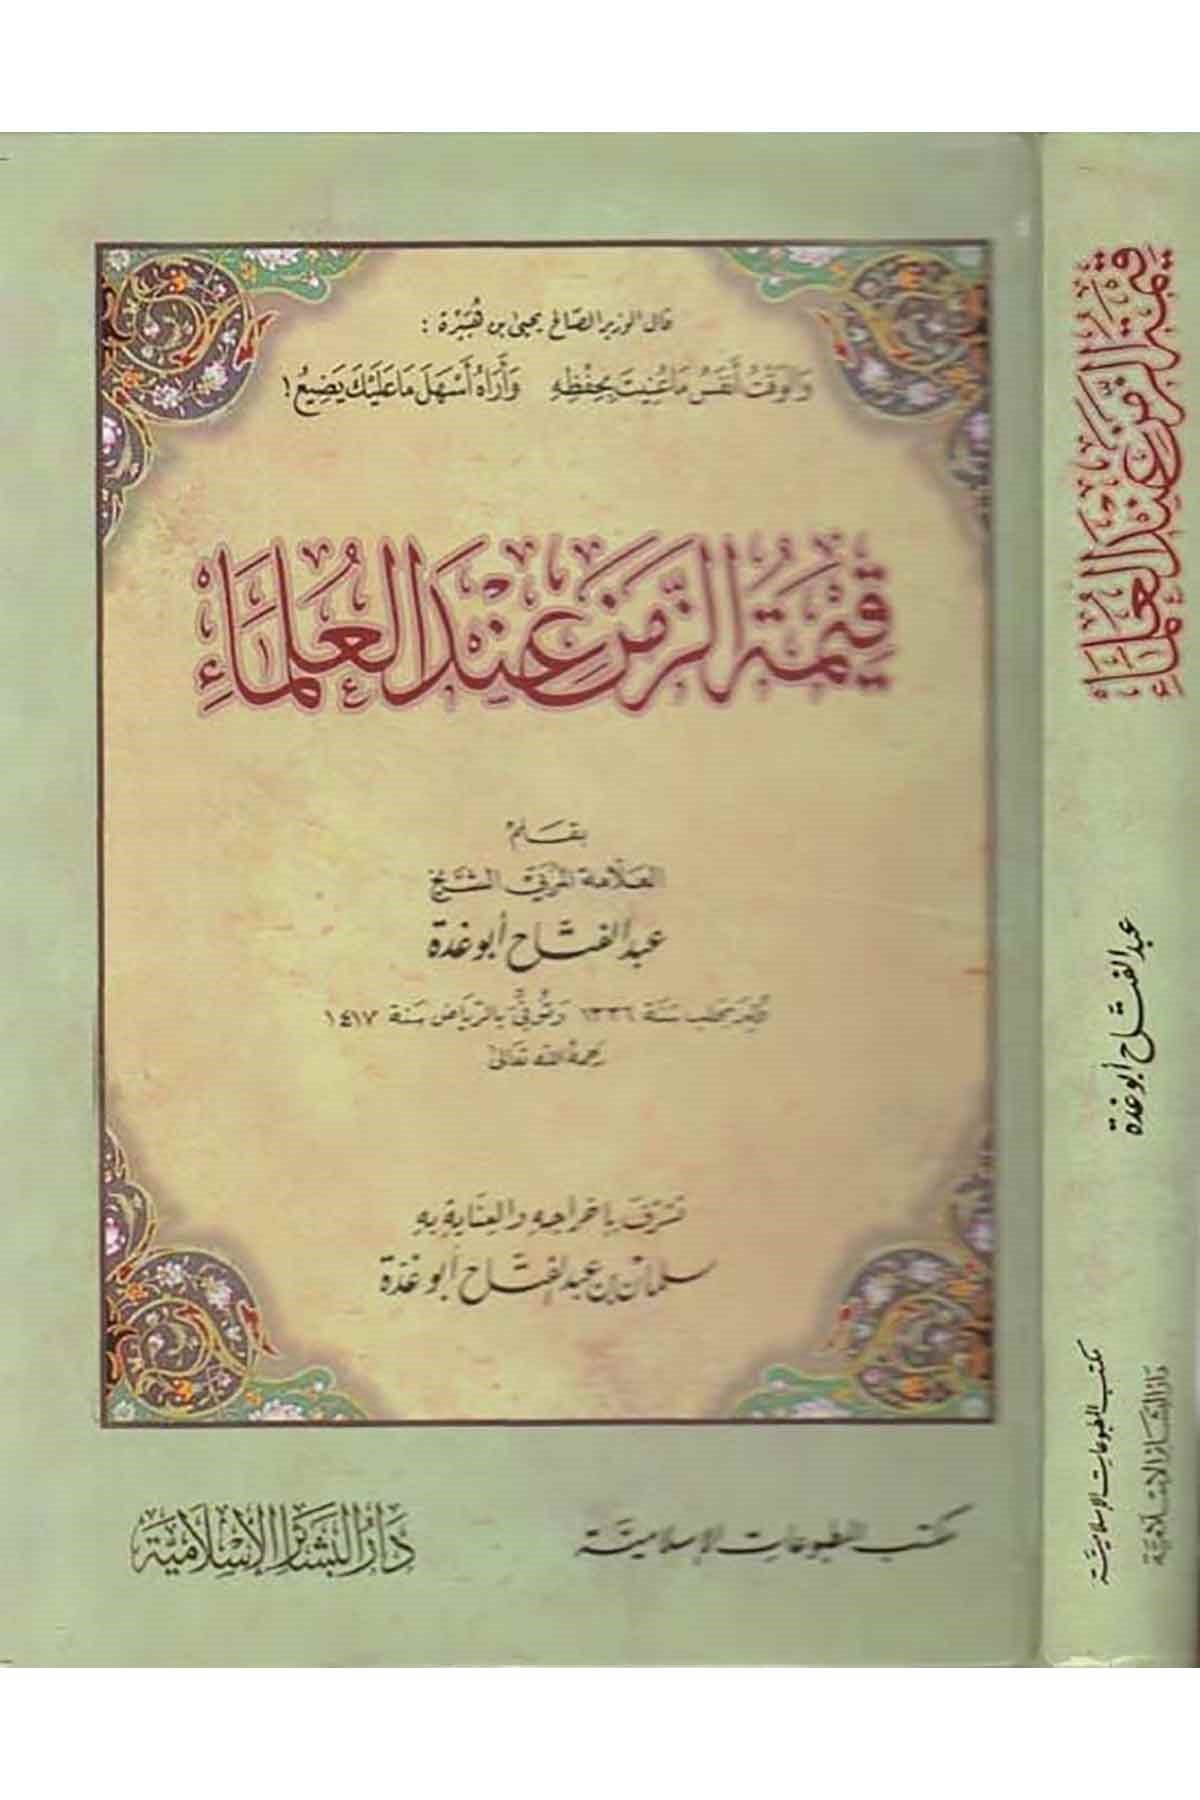 قال الوزير الصالح يحيى بن هُبَيْرة :
وَالوَقْتُ أَنفَسُ مَا عُنِيتَ بِحِفْظِهِ وَأَرَاهُ أَسْهَلَ مَا عَلَيْكَ يَضِيعُ !
قِيمَةُ الزَّمَنِ عِنْدَ العُلَمَاءِ
بقلم
العلّامة المربّي الشيخ
عبد الفتّاح أبو غدة
وُلِدَ بحلب سَنة ١٣٣٦ وتُوفِّيَ بالرّياض سَنة ١٤١٧
رَحمهُ الله تعَالىٰ
تشرّف بإخراجه والعناية به
سلمان بن عبد الفتّاح أبو غدّة
مكتب المطبوعات الإسلاميّة
دَارُ البَشَائِرِ الإِسْلَامِيَّة
قِيمَةُ الزَّمَنِ عِنْدَ العُلَمَاءِ
عبد الفتّاح أبو غدة
مكتب المطبوعات الإسلاميّة
دَارُ البَشَائِر الإسْلَاميَّة